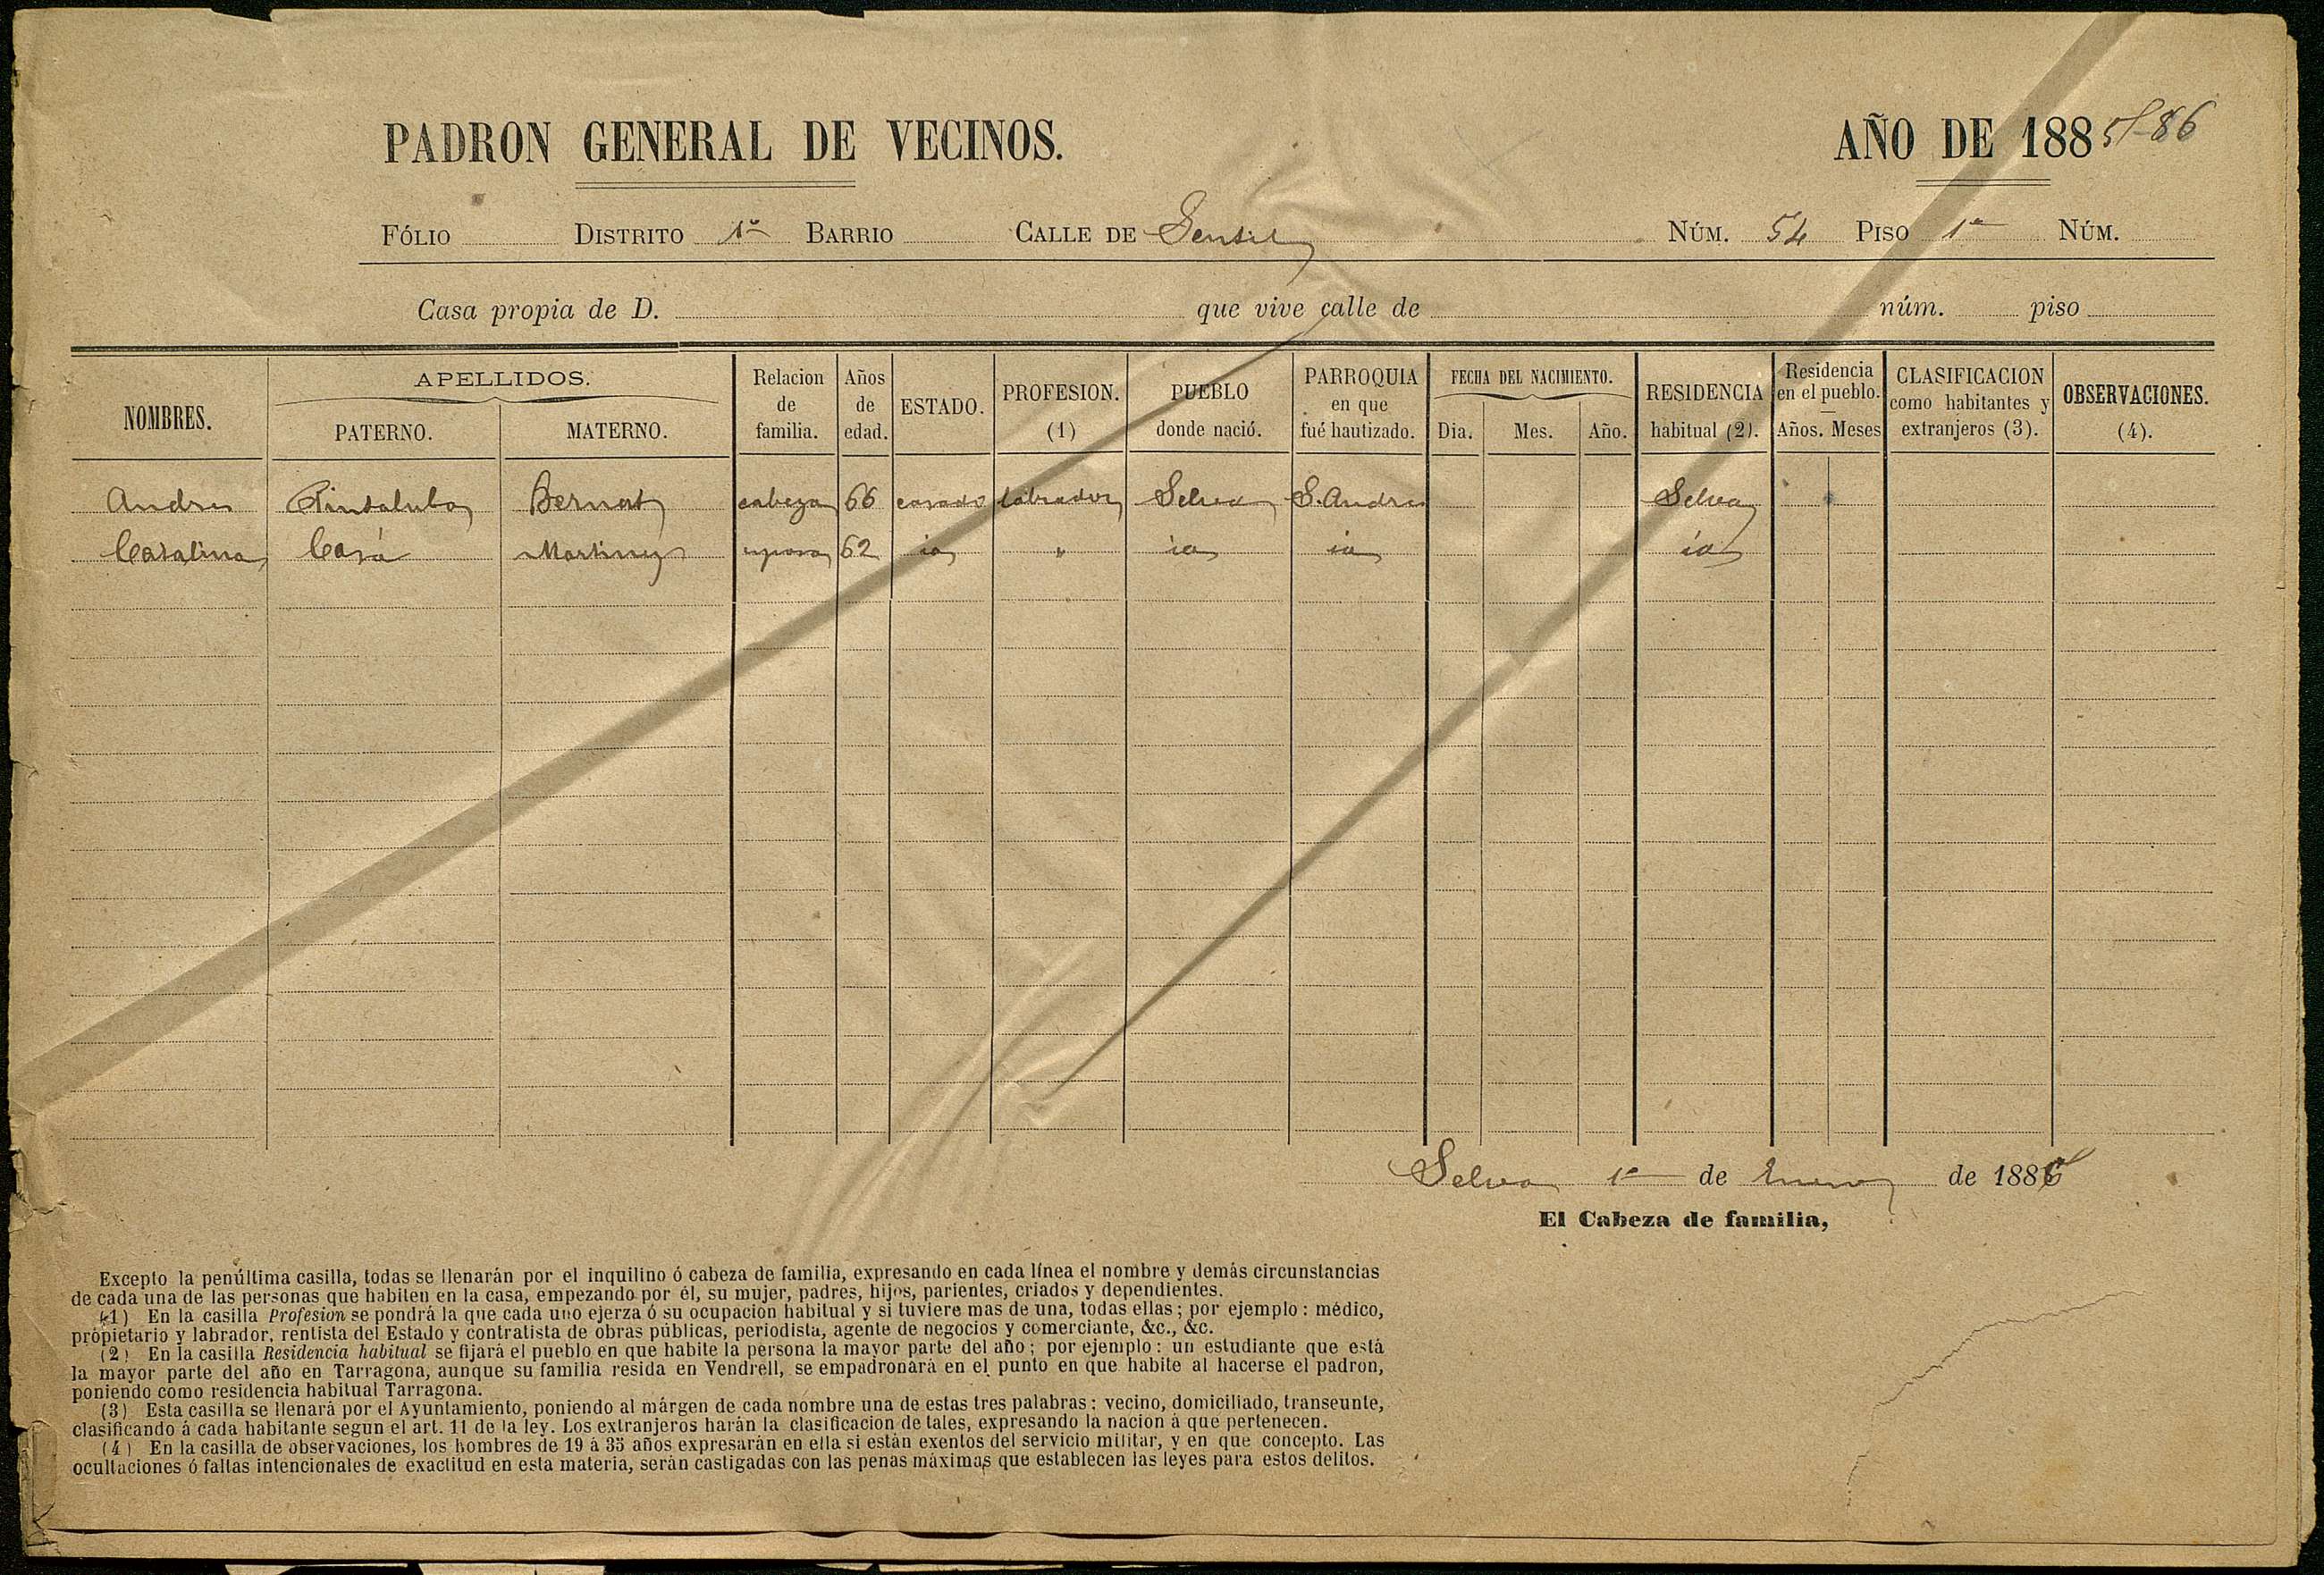 PADRON GENERAL DE VECINOS. AÑO DE 1885-86
FÓLIO DISTRITO 1º BARRIO CALLE DE NÚM. 54 PISO 1º NÚM.
Casa propia de D. que vive calle de núm. piso
NOMBRES. APELLIDOS. PATERNO. MATERNO. Relacion de familia. Años de edad. ESTADO. PROFESION. (1) PUEBLO donde nació. PARROQUIA en que fué bautizado. FECHA DEL NACIMIENTO. Dia. Mes. Año. RESIDENCIA habitual (2). Residencia en el pueblo. — Años. Meses CLASIFICACION como habitantes y extranjeros (3). OBSERVACIONES. (4).
Andres Pintaluba Bernat cabeza 66 casado labrador Selva S. Andres Selva
Catalina Martinez esposa 62 id " id id id
Selva 1º de Enero de 1886
El Cabeza de familia,
Excepto la penúltima casilla, todas se llenarán por el inquilino ó cabeza de familia, expresando en cada línea el nombre y demás circunstancias
de cada una de las personas que habiten en la casa, empezando por él, su mujer, padres, hijos, parientes, criados y dependientes.
(1) En la casilla Profesion se pondrá la que cada uno ejerza ó su ocupacion habitual y si tuviere mas de una, todas ellas; por ejemplo: médico,
propietario y labrador, rentista del Estado y contratista de obras públicas, periodista, agente de negocios y comerciante, &c., &c.
(2) En la casilla Residencia habitual se fijará el pueblo en que habite la persona la mayor parte del año; por ejemplo: un estudiante que está
la mayor parte del año en Tarragona, aunque su familia resida en Vendrell, se empadronará en el punto en que habite al hacerse el padron,
poniendo como residencia habitual Tarragona.
(3) Esta casilla se llenará por el Ayuntamiento, poniendo al márgen de cada nombre una de estas tres palabras: vecino, domiciliado, transeunte,
clasificando á cada habitante segun el art. 11 de la ley. Los extranjeros harán la clasificacion de tales, expresando la nacion á que pertenecen.
(4) En la casilla de observaciones, los hombres de 19 á 35 años expresarán en ella si están exentos del servicio militar, y en que concepto. Las
ocultaciones ó faltas intencionales de exactitud en esta materia, serán castigadas con las penas máximas que establecen las leyes para estos delitos.